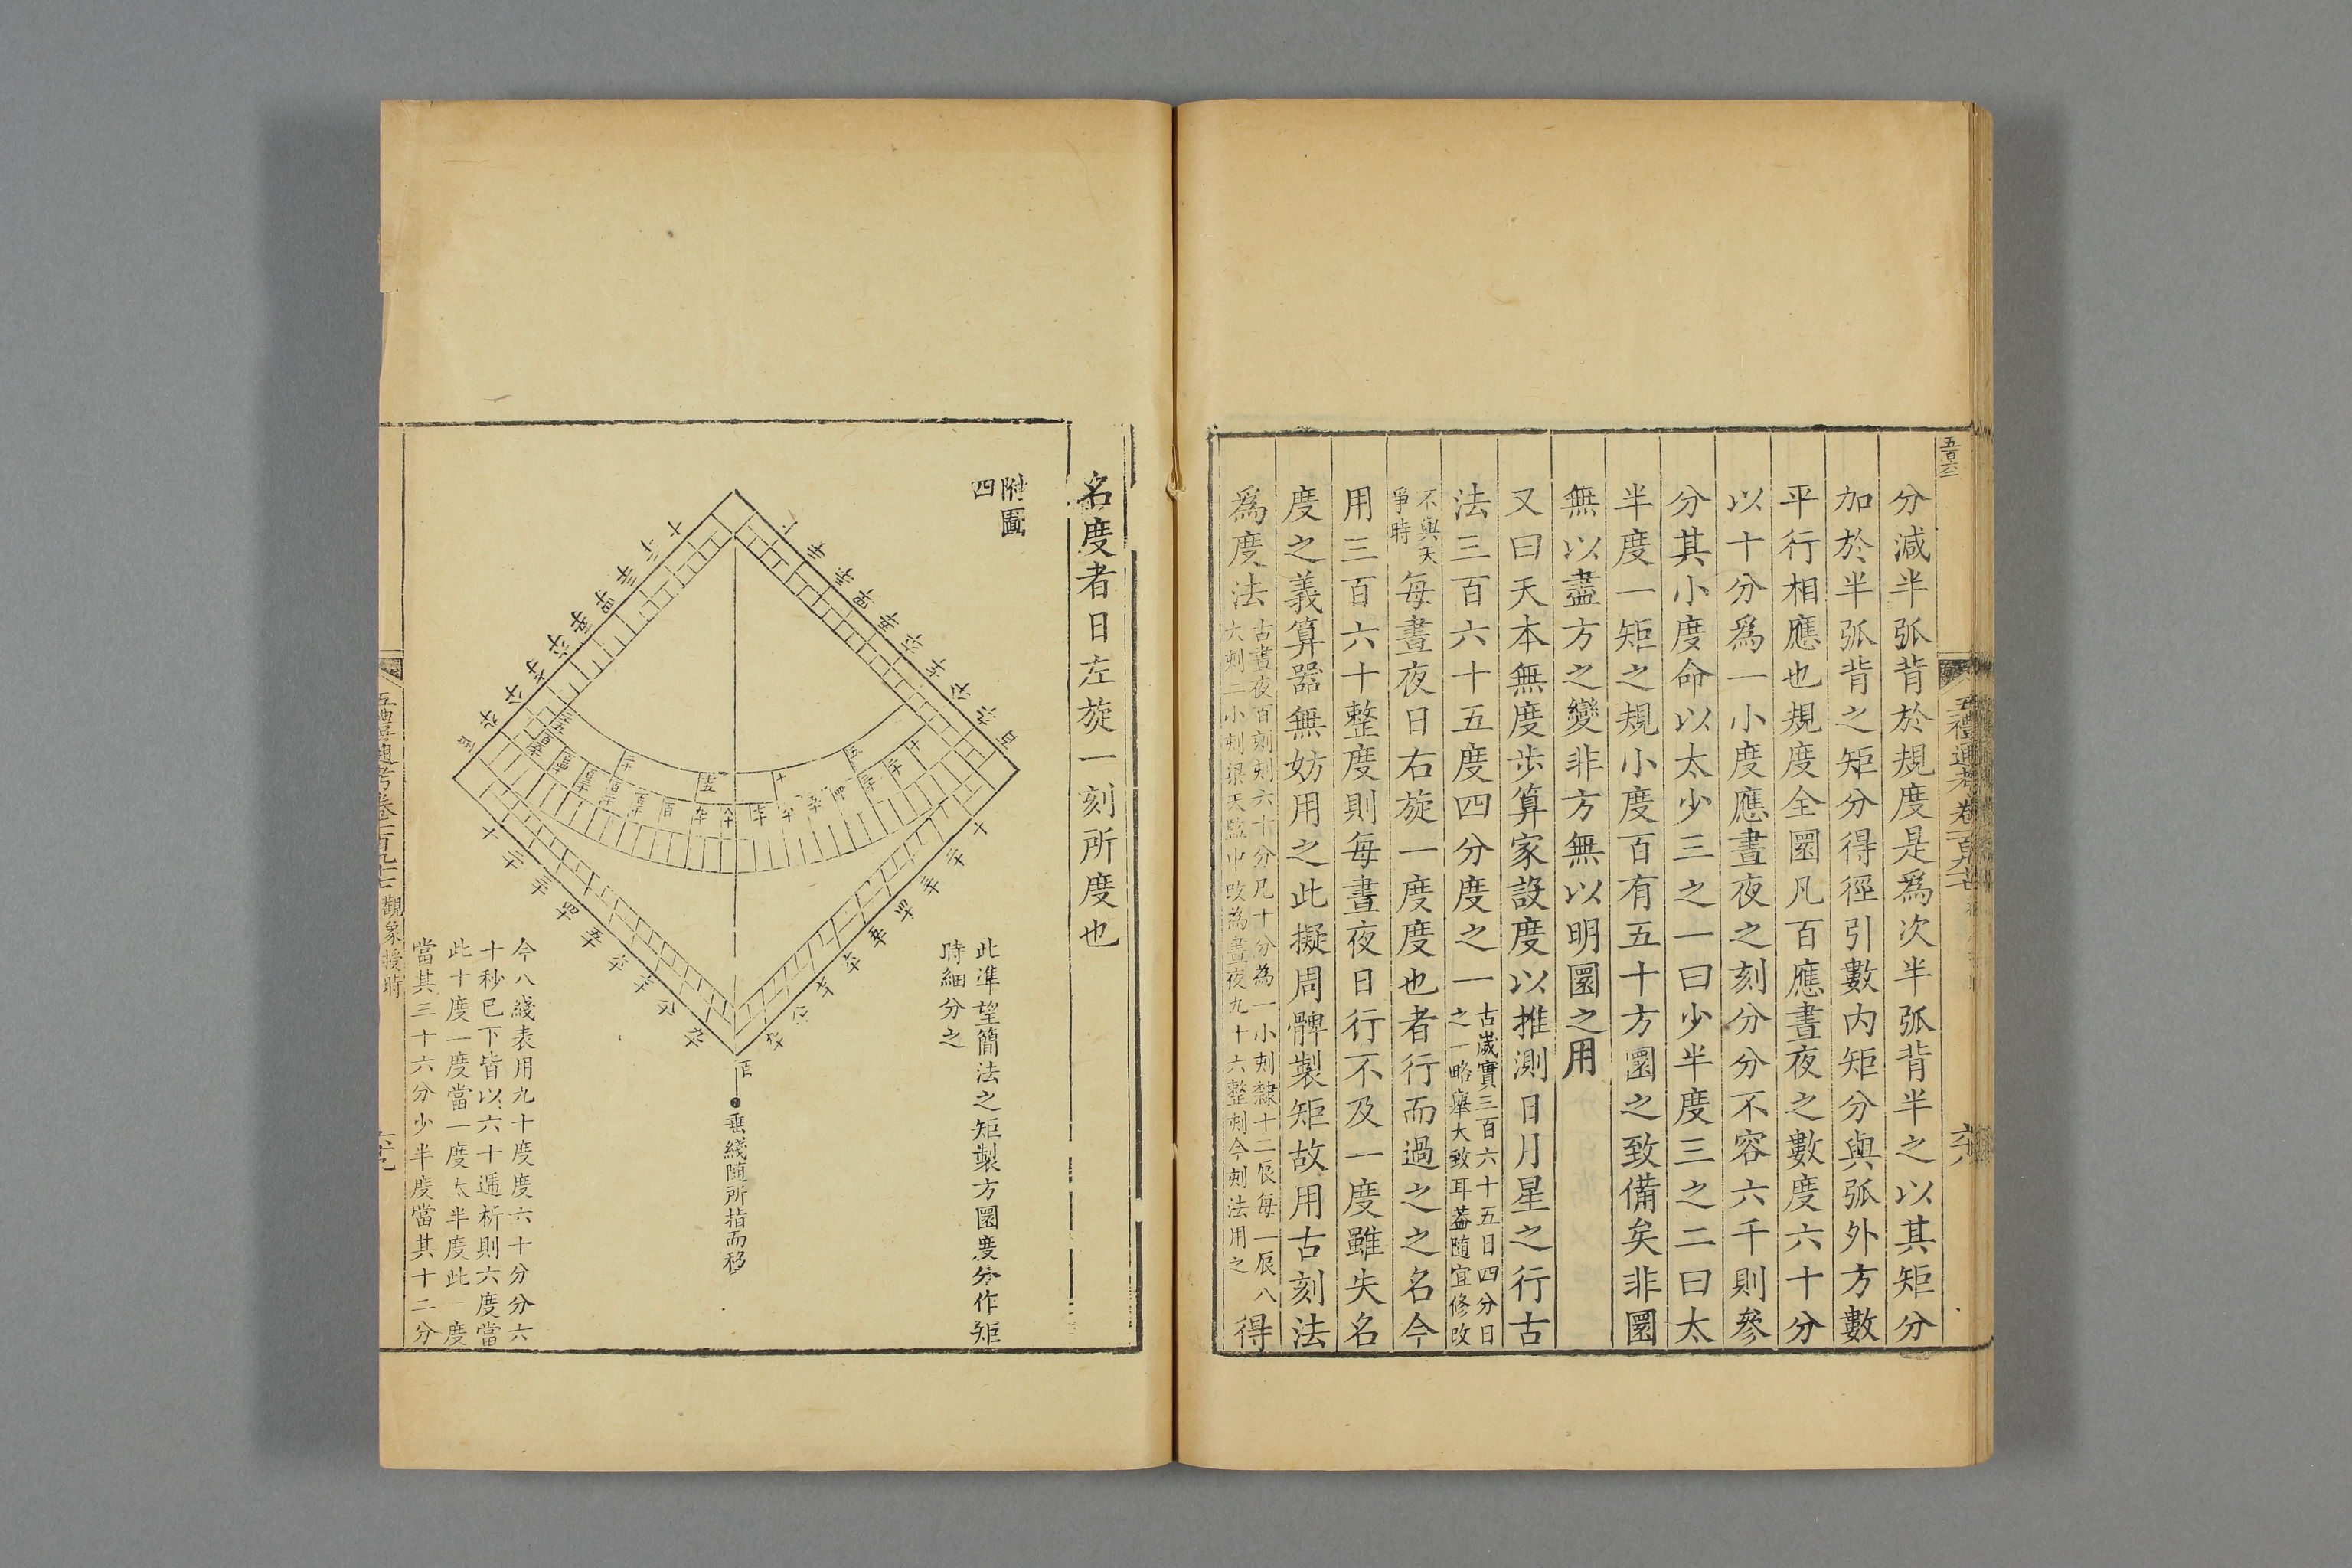 五百六
五禮通考卷一百九十七
六八
分減半弧背於規度是爲次半弧背半之以其矩分
加於半弧背之矩分得徑引數內矩分與弧外方數
平行相應也規度全圜凡百應晝夜之數度六十分
以十分爲一小度應晝夜之刻分分不容六千則參
分其小度命以太少三之一曰少半度三之二曰太
半度一矩之規小度百有五十方圜之致備矣非圜
無以盡方之變非方無以明圜之用
又曰天本無度步算家設度以推測日月星之行古
法三百六十五度四分度之一
古歲實三百六十五日四分日
之一略舉大致耳葢隨宜修改
不與天
爭時
每晝夜日右旋一度度也者行而過之之名今
用三百六十整度則每晝夜日行不及一度雖失名
度之義算器無妨用之此擬周髀製矩故用古刻法
爲度法
古晝夜百刻刻六十分凡十分為一小刻隸十二辰每一辰八
大刻二小刻梁天監中改為晝夜九十六整刻今刻法用之
得
名度者日左旋一刻所度也
附圖
四
此準望簡法之矩製方圜度分作矩
時細分之
垂綫隨所指而移
今八綫表用九十度度六十分分六
十秒已下皆以六十遞析則六度當
此十度一度當一度太半度此一度
當其三十六分少半度當其十二分
五禮通考卷一百九十七 觀象授時
六九